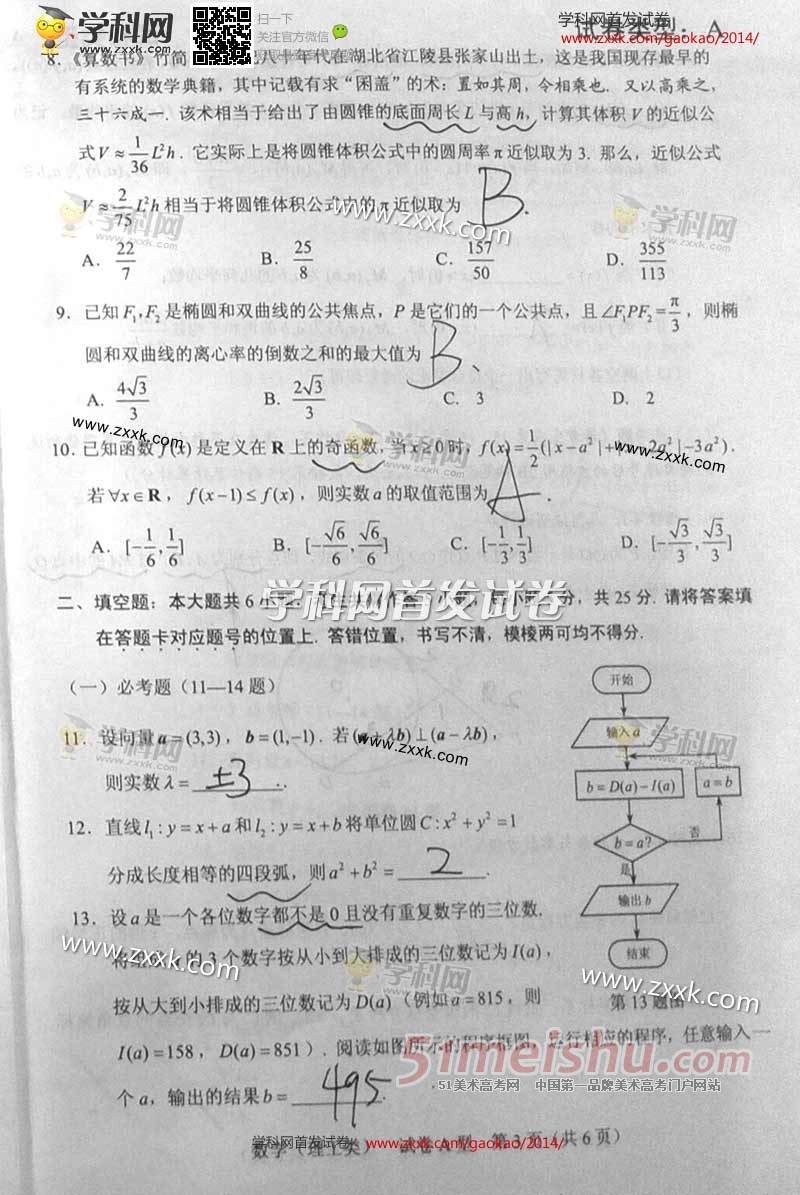 学科网首发试卷
www.zxxk.com/gaokao/2014/
扫一下
关注官方微信
试卷类型：A
8.《算数书》竹简 八十年代在湖北省江陵县张家山出土，这是我国现存最早的
有系统的数学典籍，其中记载有求“囷盖”的术：置如其周，令相乘也．又以高乘之，
三十六成一．该术相当于给出了由圆锥的底面周长 L 与高 h，计算其体积 V 的近似公
式 V ≈ 1/36 L²h．它实际上是将圆锥体积公式中的圆周率 π 近似取为 3. 那么，近似公式
V ≈ 2/75 L²h 相当于将圆锥体积公式中的 π 近似取为 B．
A. 22/7 B. 25/8 C. 157/50 D. 355/113
9. 已知 F₁, F₂ 是椭圆和双曲线的公共焦点，P 是它们的一个公共点，且 ∠F₁PF₂ = π/3，则椭
圆和双曲线的离心率的倒数之和的最大值为 B．
A. 4√3/3 B. 2√3/3 C. 3 D. 2
10. 已知函数 f(x) 是定义在 R 上的奇函数，当 x ≥ 0 时，f(x) = 1/2(|x − a²| + 2a²| − 3a²)．
若 ∀x ∈ R，f(x−1) ≤ f(x)，则实数 a 的取值范围为 A．
A. [−1/6, 1/6] B. [−√6/6, √6/6] C. [−1/3, 1/3] D. [−√3/3, √3/3]
学科网首发试卷
二、填空题：本大题共 6 小 分，共 25 分. 请将答案填
在答题卡对应题号的位置上. 答错位置，书写不清，模棱两可均不得分.
（一）必考题（11—14 题）
11. 设向量 a = (3,3)，b = (1,−1)．若 (a + λb) ⊥ (a − λb)，
则实数 λ = ±3．
12. 直线 l₁ : y = x + a 和 l₂ : y = x + b 将单位圆 C : x² + y² = 1
分成长度相等的四段弧，则 a² + b² = 2．
13. 设 a 是一个各位数字都不是 0 且没有重复数字的三位数.
的 3 个数字按从小到大排成的三位数记为 I(a)，
按从大到小排成的三位数记为 D(a)（例如 a = 815，则
I(a) = 158，D(a) = 851）．阅读如图所示的程序框图，运行相应的程序，任意输入一
个 a，输出的结果 b = 495．
开始
输入 a
b = D(a) − I(a)
a = b
b = a?
否
是
输出 b
结束
第 13 题图
学科网
www.zxxk.com
51meishu.com
51美术高考网 中国第一品牌美术高考门户网站
学科网首发试卷
www.zxxk.com/gaokao/2014/
数学（理工类） 试卷A型 第 3 页（共 6 页）